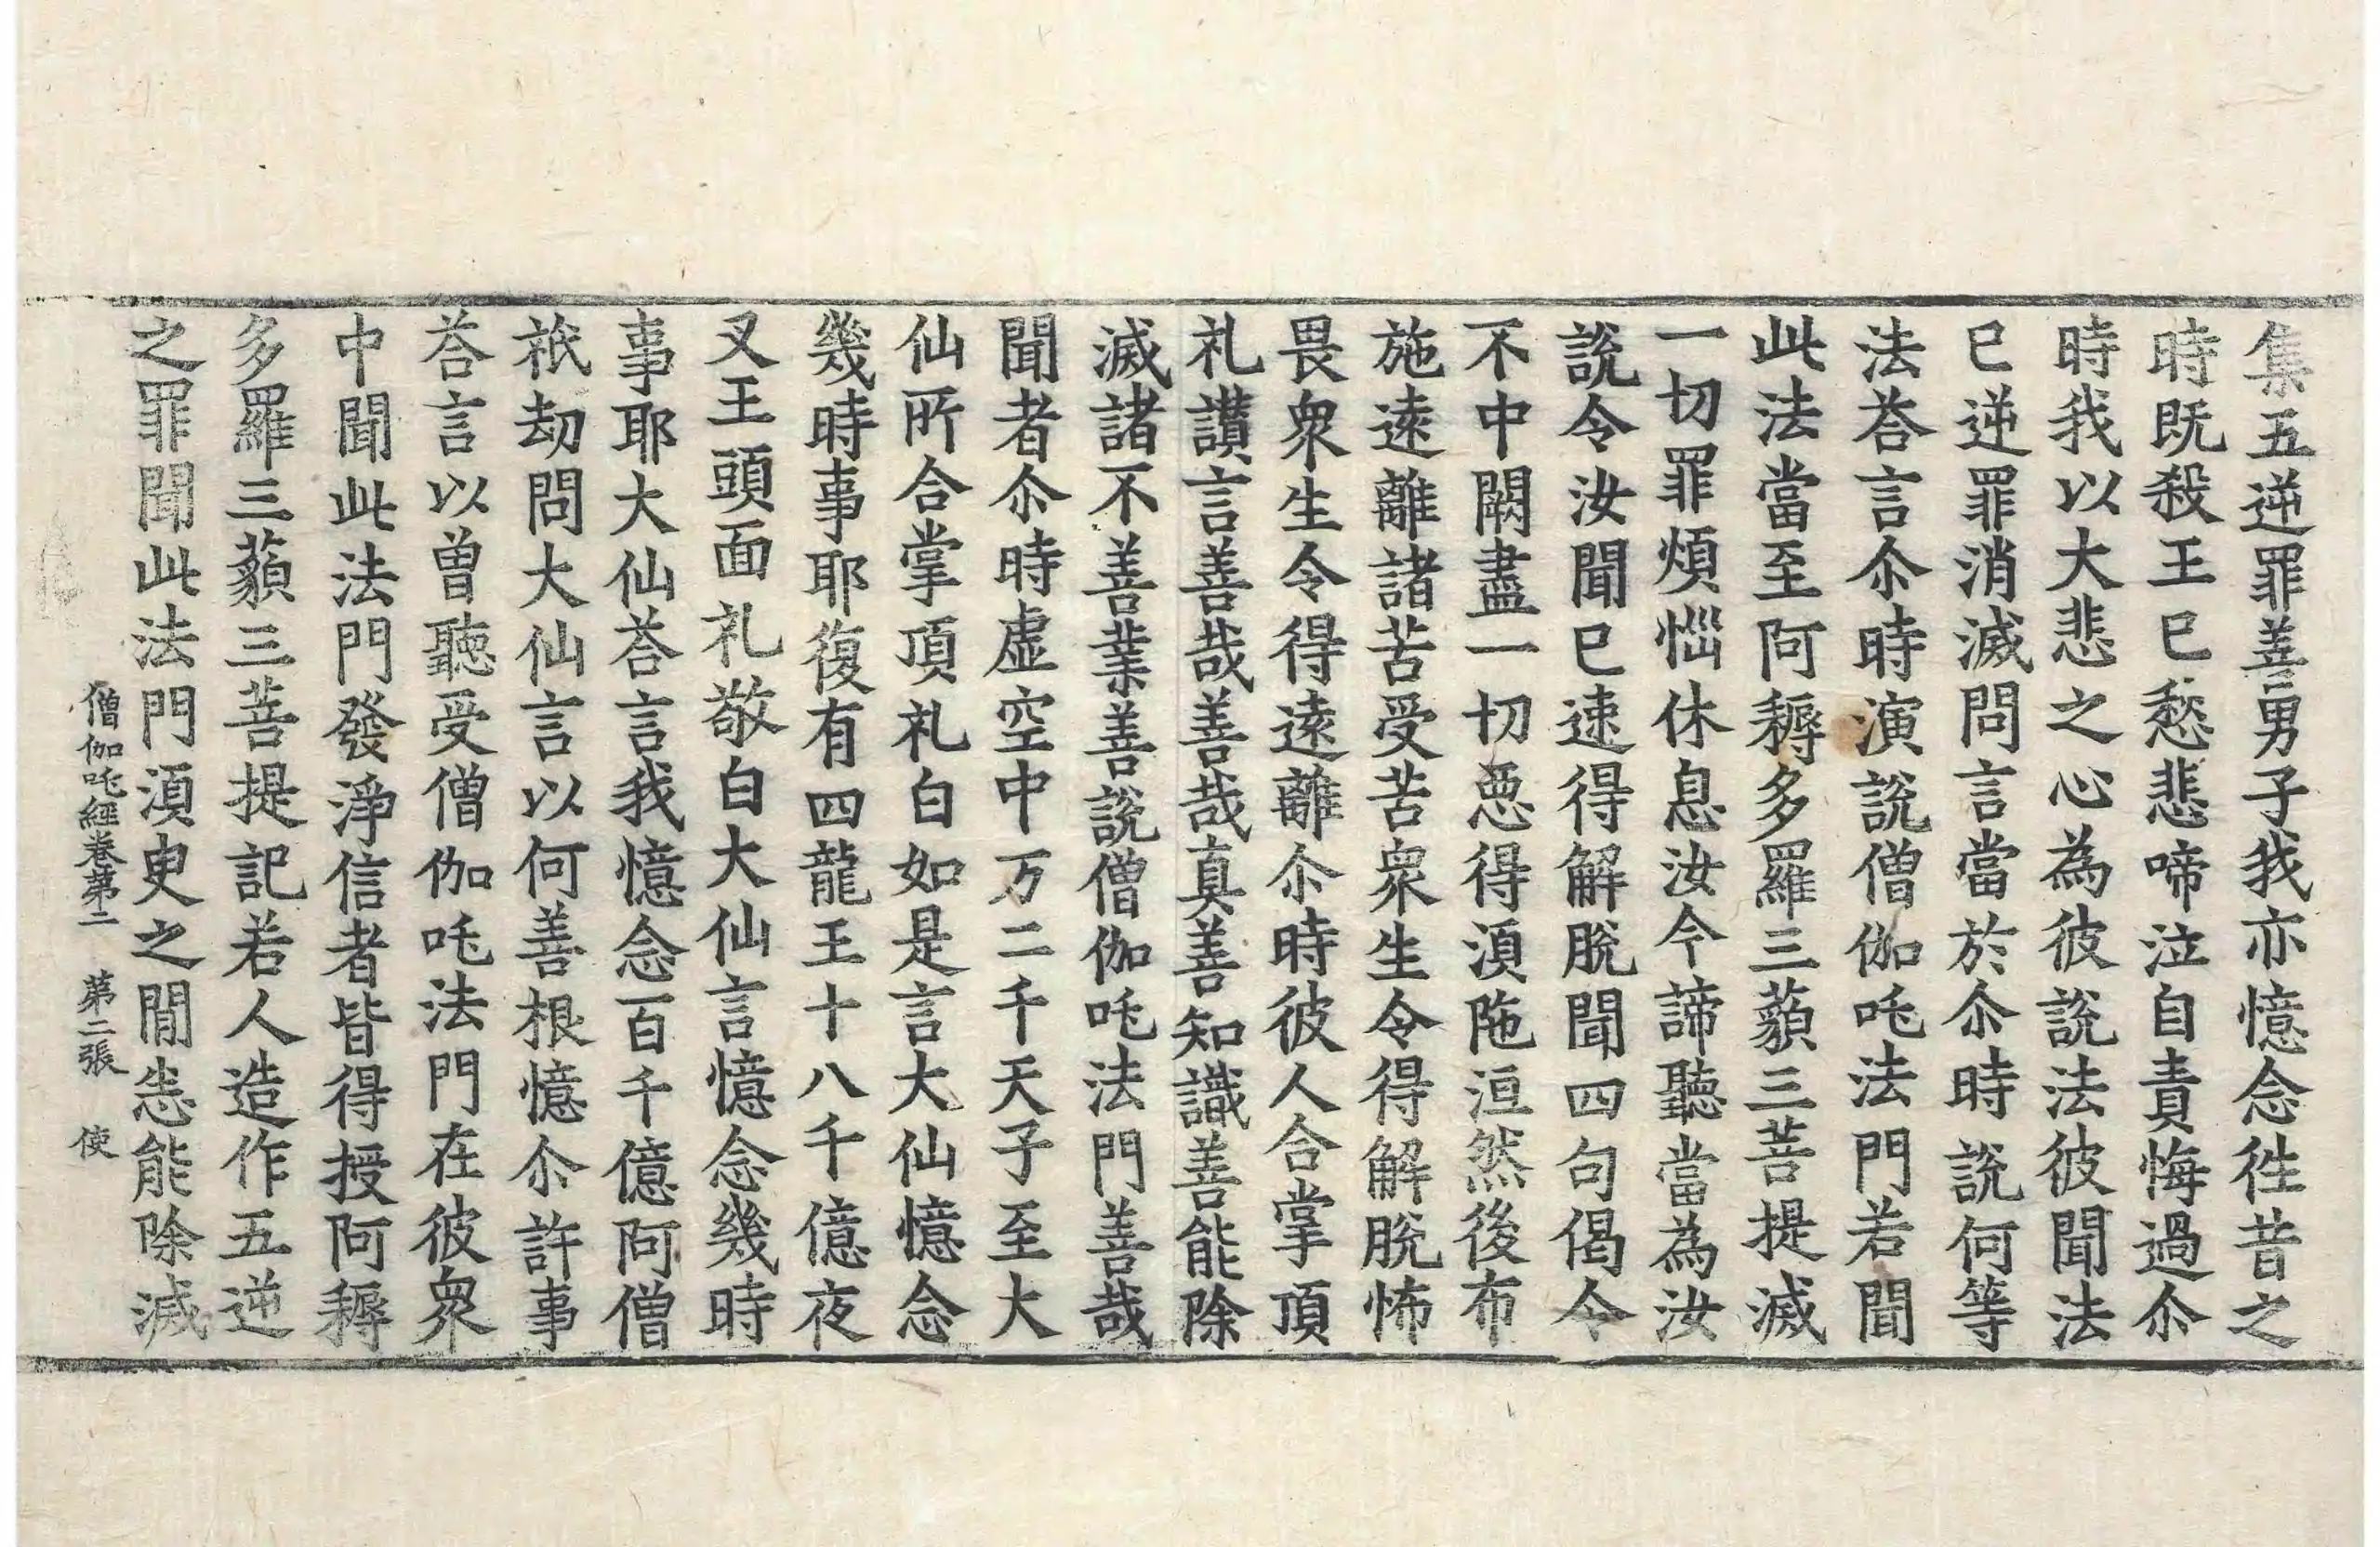 集五逆罪善男子我亦憶念徃昔之
時旣殺王已愁悲啼泣自責悔過尒
時我以大悲之心為彼說法彼聞法
已逆罪消滅問言當於尒時說何等
法荅言尒時演說僧伽吒法門若聞
此法當至阿耨多羅三藐三菩提滅
一切罪煩惱休息汝今諦聽當為汝
說令汝聞已速得解脫聞四句偈令
不中闕盡一切惡得湏陁洹然後布
施遠離諸苦受苦衆生令得解脫怖
畏衆生令得遠離尒時彼人合掌頂
礼讃言善哉善哉真善知識善能除
滅諸不善業善說僧伽吒法門善哉
聞者尒時虛空中万二千天子至大
仙所合掌頂礼白如是言大仙憶念
幾時事耶復有四龍王十八千億夜
叉王頭面礼敬白大仙言憶念幾時
事耶大仙荅言我憶念百千億阿僧
祇劫問大仙言以何善根憶尒許事
荅言以曾聽受僧伽吒法門在彼衆
中聞此法門發淨信者皆得授阿耨
多羅三藐三菩提記若人造作五逆
之罪聞此法門湏臾之閒悉能除滅
僧伽吒經卷第二　第二張　使